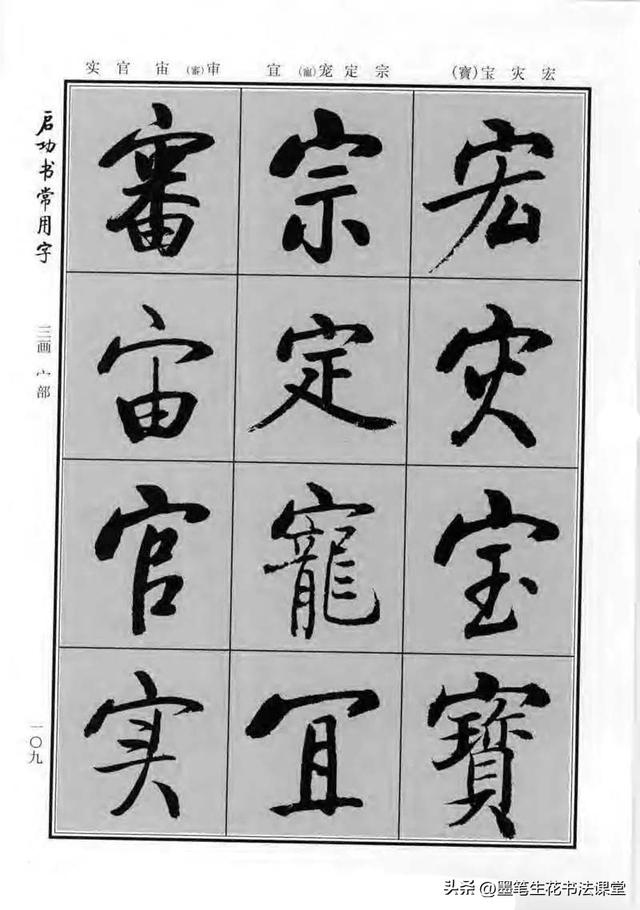 宏灾宝(寶)
宗定宠(寵)宜
审(審)宙官实
宏灾宝寶
宗定寵宜
審宙官实
启功书常用字
三画 宀部
一〇九
头条 @墨笔生花书法课堂